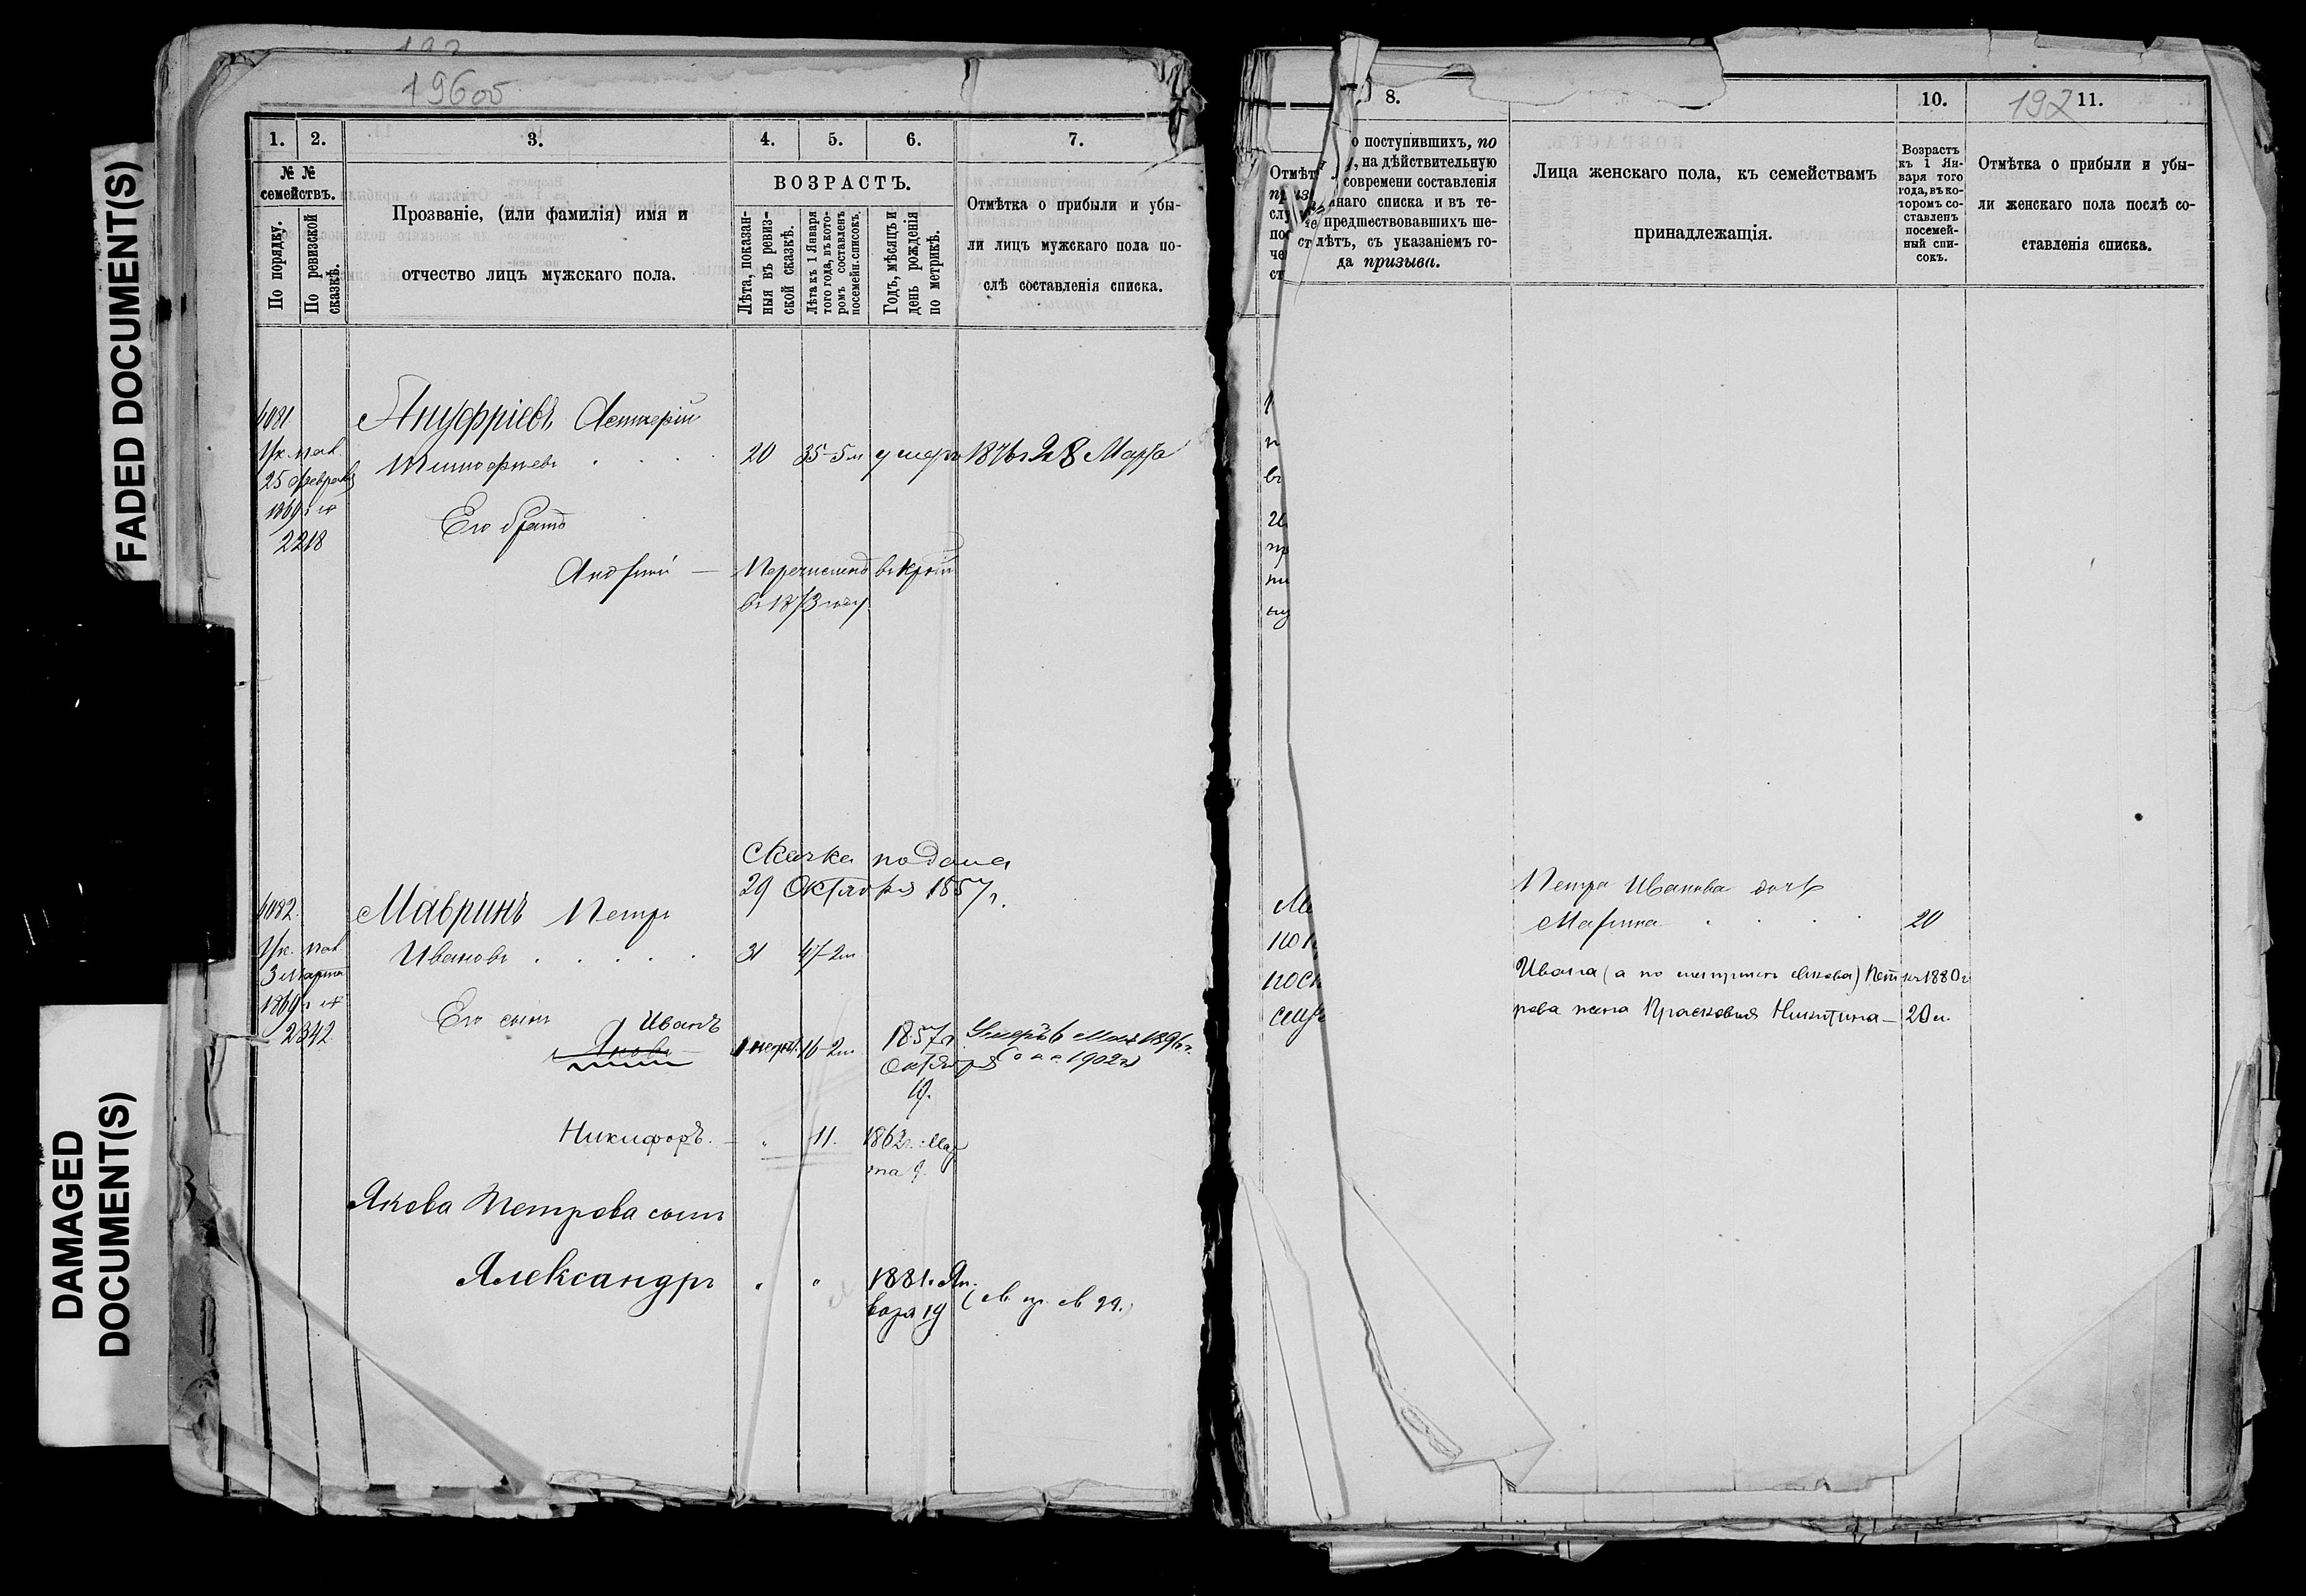 FADED DOCUMENT(S)
DAMAGED
DOCUMENT(S)
196об
1.
2.
3.
4.
5.
6.
7.
№ №
семействъ.
По порядку.
По ревизской
сказкѣ.
Прозваніе, (или фамилія) имя и
отчество лицъ мужскаго пола.
ВОЗРАСТЪ.
Лѣта, показан-
ныя въ ревиз-
ской сказкѣ.
Лѣта къ 1 Января
того года, въ кото-
ромъ составленъ
посемейн. списокъ.
Годъ, мѣсяцъ и
день рожденія
по метрикѣ.
Отмѣтка о прибыли и убы-
ли лицъ мужскаго пола по-
слѣ составленія списка.
4081
Ануфріевъ Астерій
Ук. пал.
Тимофеевъ 20 35-5м умеръ 1876г 28 Марта
25 февраля
1869 г
2218
Его братъ
Андрей — Перечисленъ въ
въ 1873 году
Скачка подана
29 Октября 1857 г.
4082.
Мавринъ Петръ
Ук. пал.
Ивановъ 31 47-2м
3 Марта
1869 г
2342
Его сынъ Иванъ
Яковъ 16-2м 1857г Умеръ 6 Мая 1896г.
Октября 1902г
19.
Никифоръ. 11. 1862г. Мар
та 9.
Якова Петрова сынъ
Александръ " " 1881. Ян.
варя 19
8.
10.
192
11.
Отмѣт
о поступившихъ, по
, на дѣйствительную
современи составленія
наго списка и въ те-
предшествовавшихъ ше-
лѣтъ, съ указаніемъ го-
да призыва.
Лица женскаго пола, къ семействамъ
принадлежащія.
Возрастъ
къ 1 Ян-
варя того
года, въ ко-
торомъ со-
ставленъ
посемей-
ный спи-
сокъ.
Отмѣтка о прибыли и убы-
ли женскаго пола послѣ со-
ставленія списка.
Петра Иванова дочь
Марина 20
Ивана (а по метрикѣ Якова) Пет къ 1880г
рова жена Прасковья Никитина — 20 л.